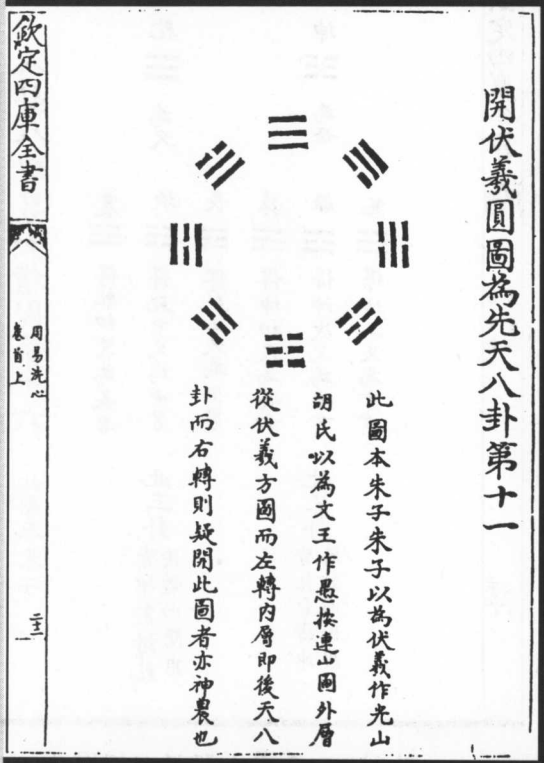 開伏羲圓圖為先天八卦第十一
此圖本朱子朱子以為伏羲作光山
胡氏以為文王作愚按連山圖外層
從伏羲方圖而左轉内層即後天八
卦而右轉則疑開此圖者亦神農也
欽定四庫全書
周易洗心
卷首上